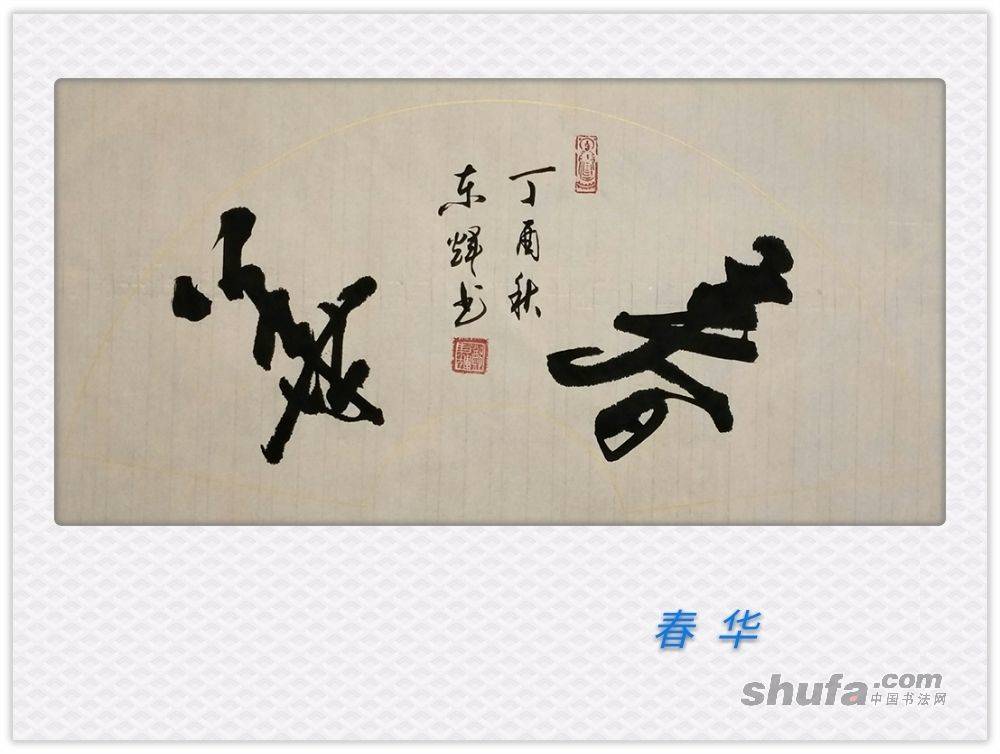 春
丁酉秋
东辉书
华
春 华
shufa.com
中国书法网